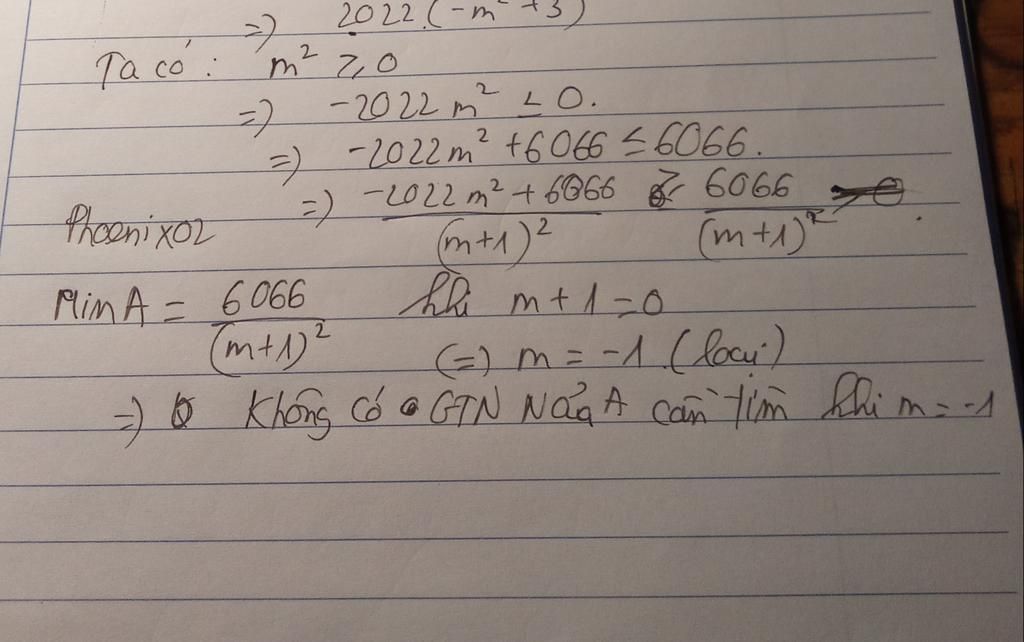 => 2022.(-m² + 3)
Ta có : m² ≥ 0
=> -2022 m² ≤ 0.
=> -2022m² + 6066 ≤ 6066.
=> -2022 m² + 6066 / (m+1)² ≥ 6066 / (m+1)² .
Phoenix02
Min A = 6066 / (m+1)² khi m + 1 = 0
(=) m = -1 (loại)
=> Không có GTN Nủa A cần tìm khi m = -1